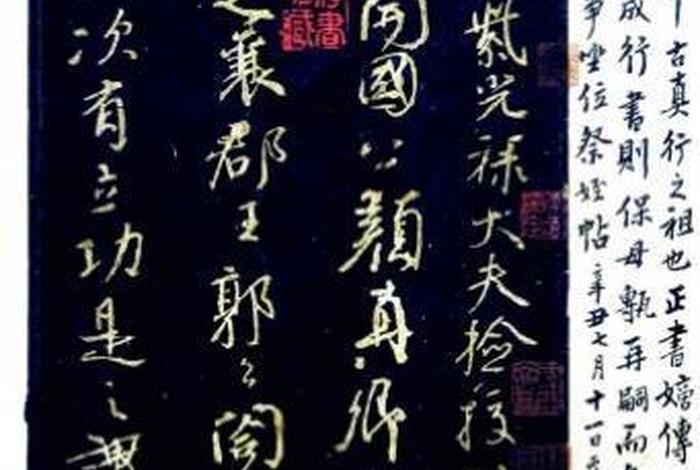 古真行之祖也正書嫡傳
成行書則保母甎再嗣而
爭坐位祭姪帖辛丑七月十一日
紫光祿大夫撿挍
開國公顏真卿
襄郡王郭公閤
次有立功是之謂